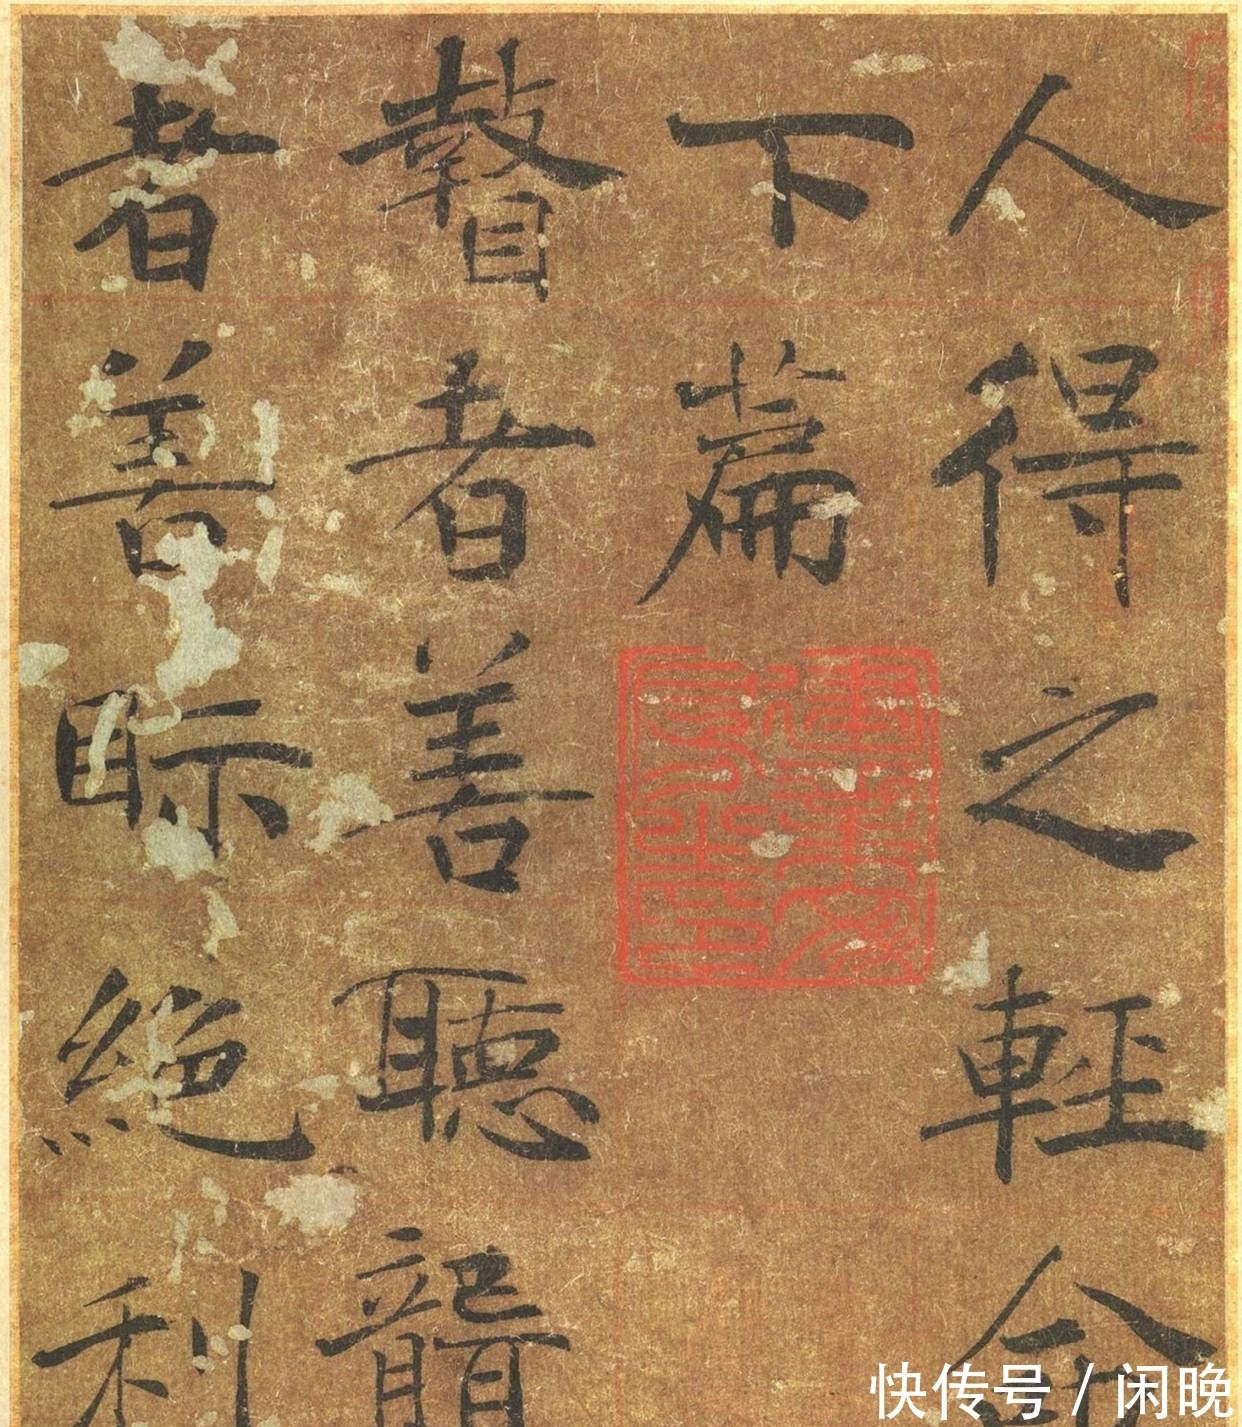 人得之輕命
下篇
瞽者善聽聾
者善眎絕利
快传号 / 闲晚